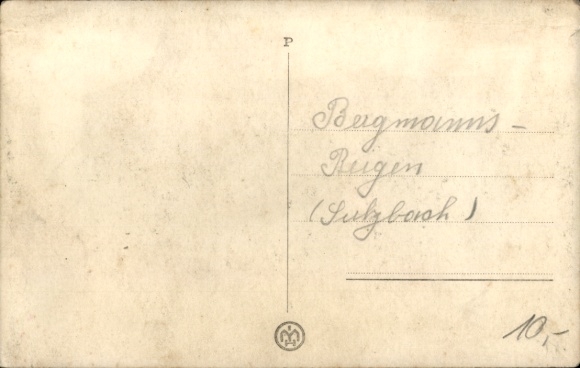 P
Bergmanns-
Reigen
(Sulzbach)
10,-